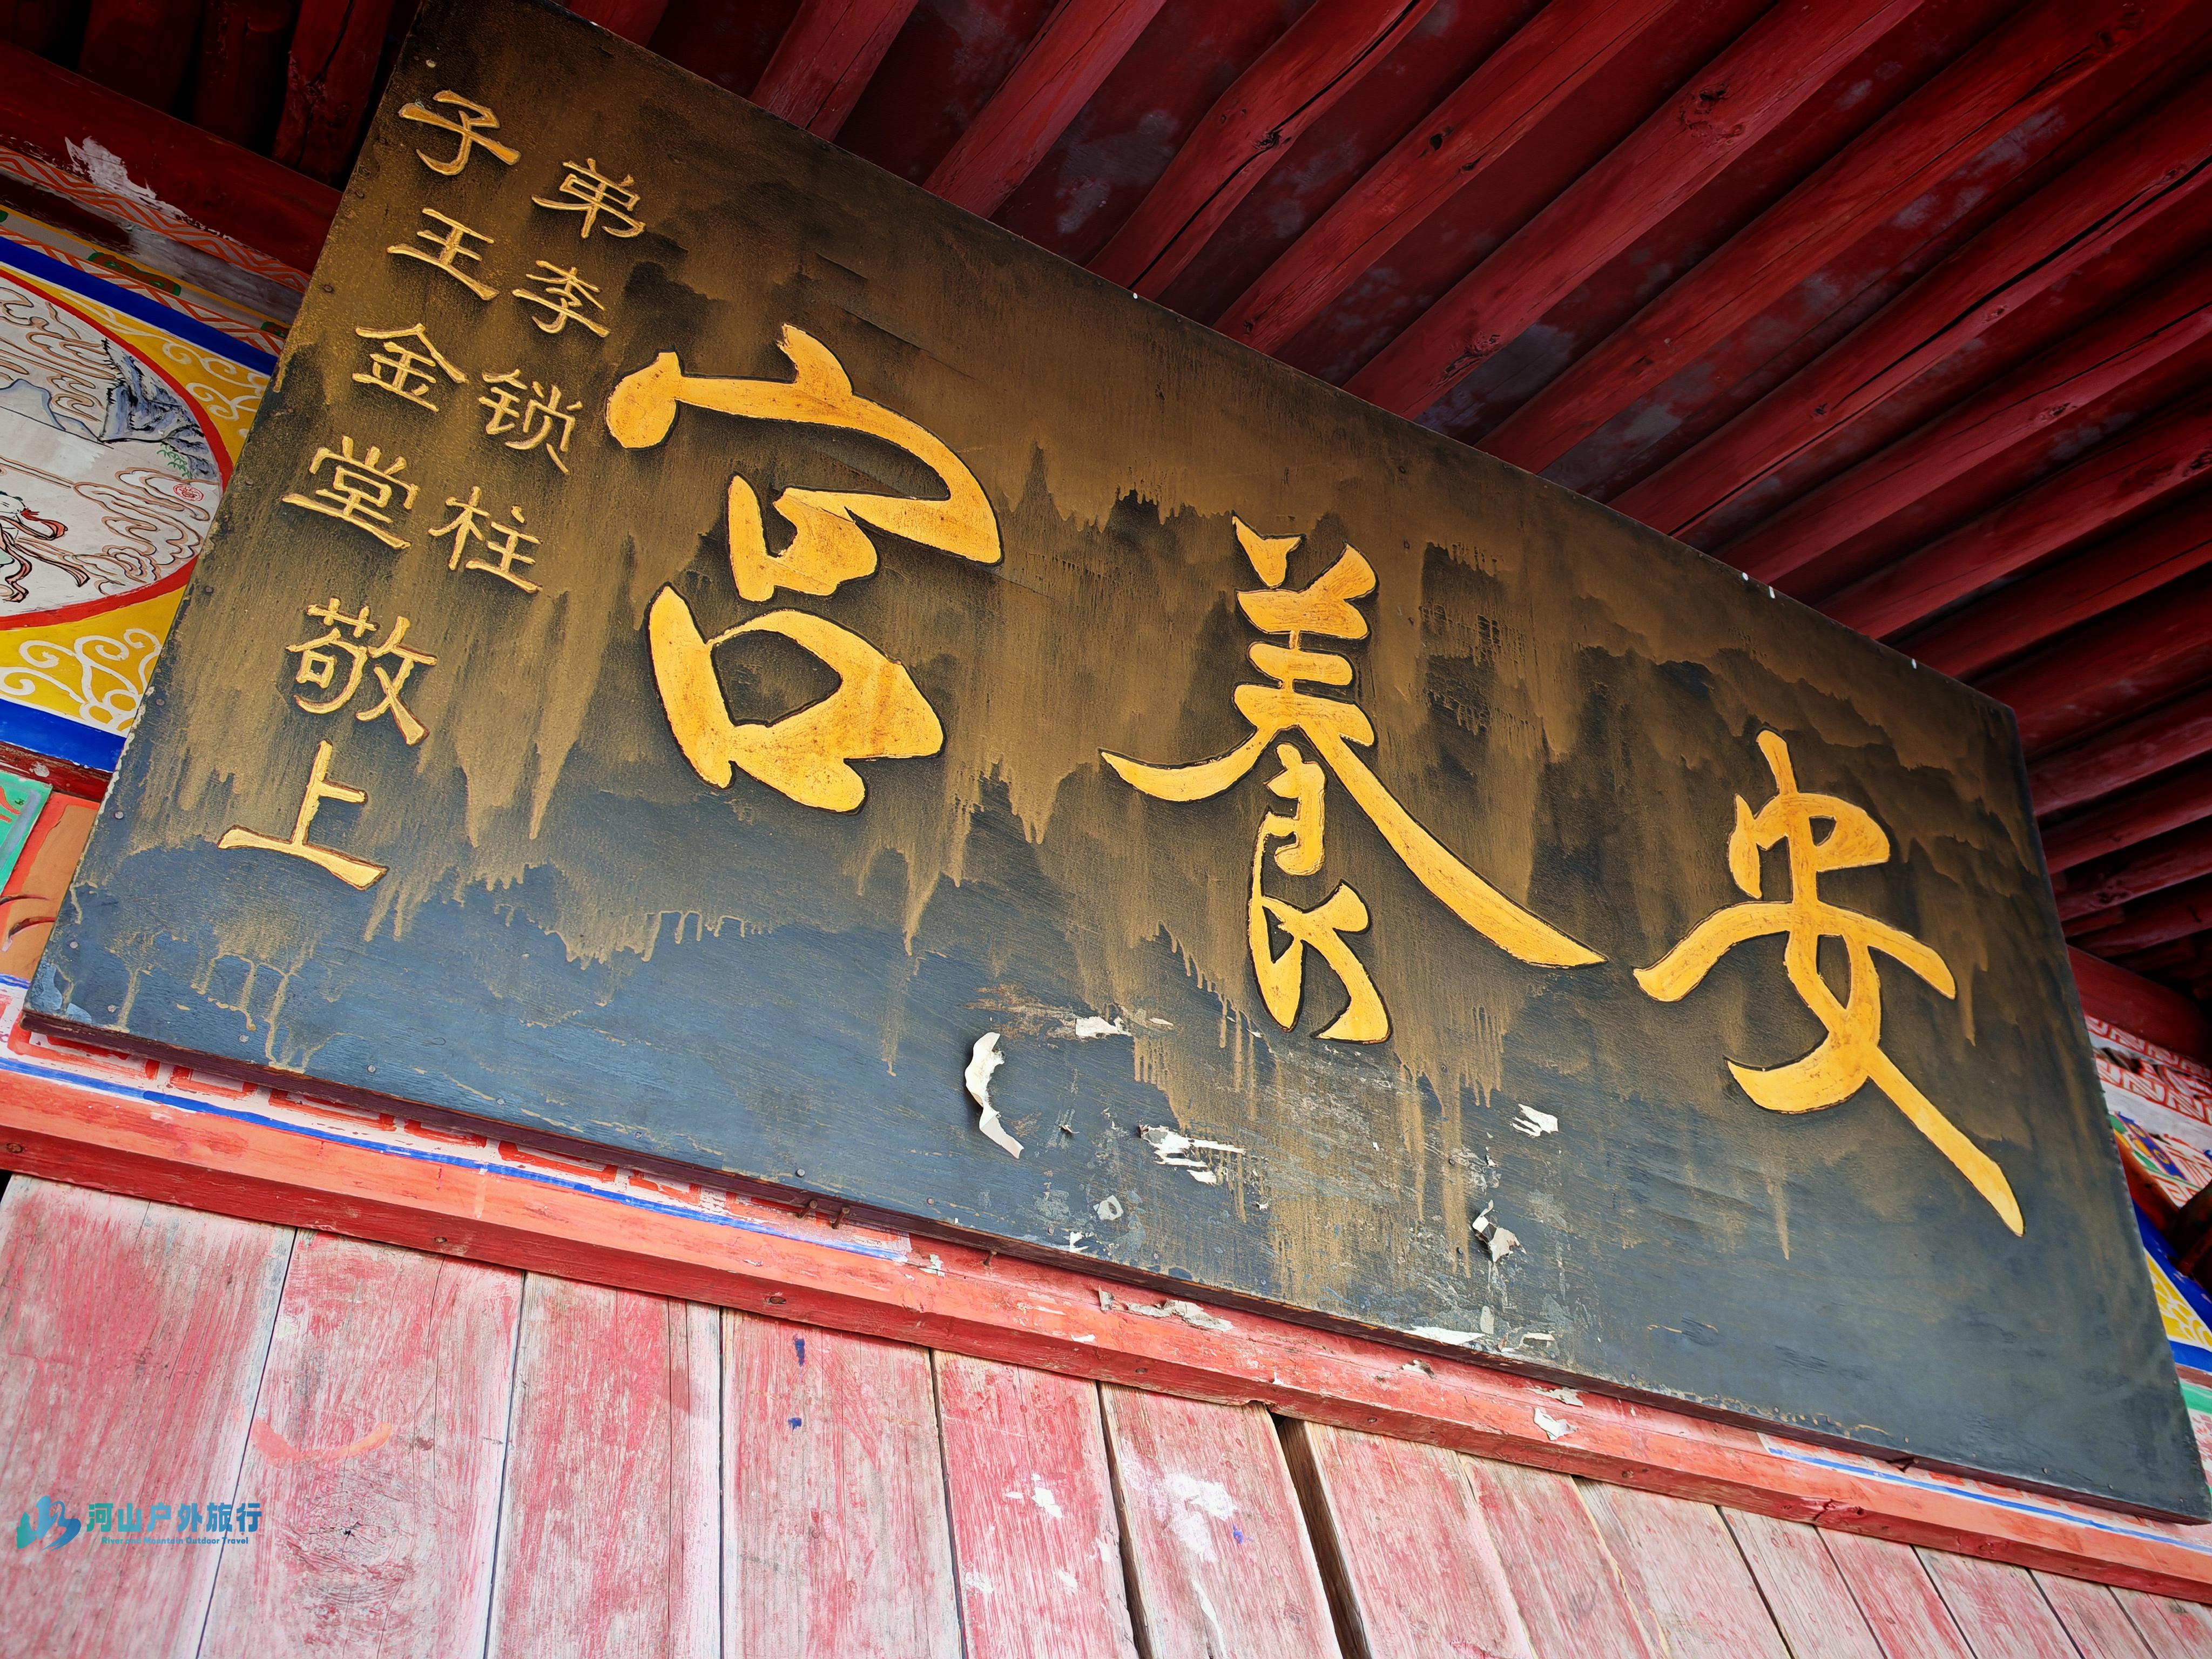 安養宫
弟李锁柱
子王金堂敬上
河山户外旅行
River and Mountain Outdoor Travel